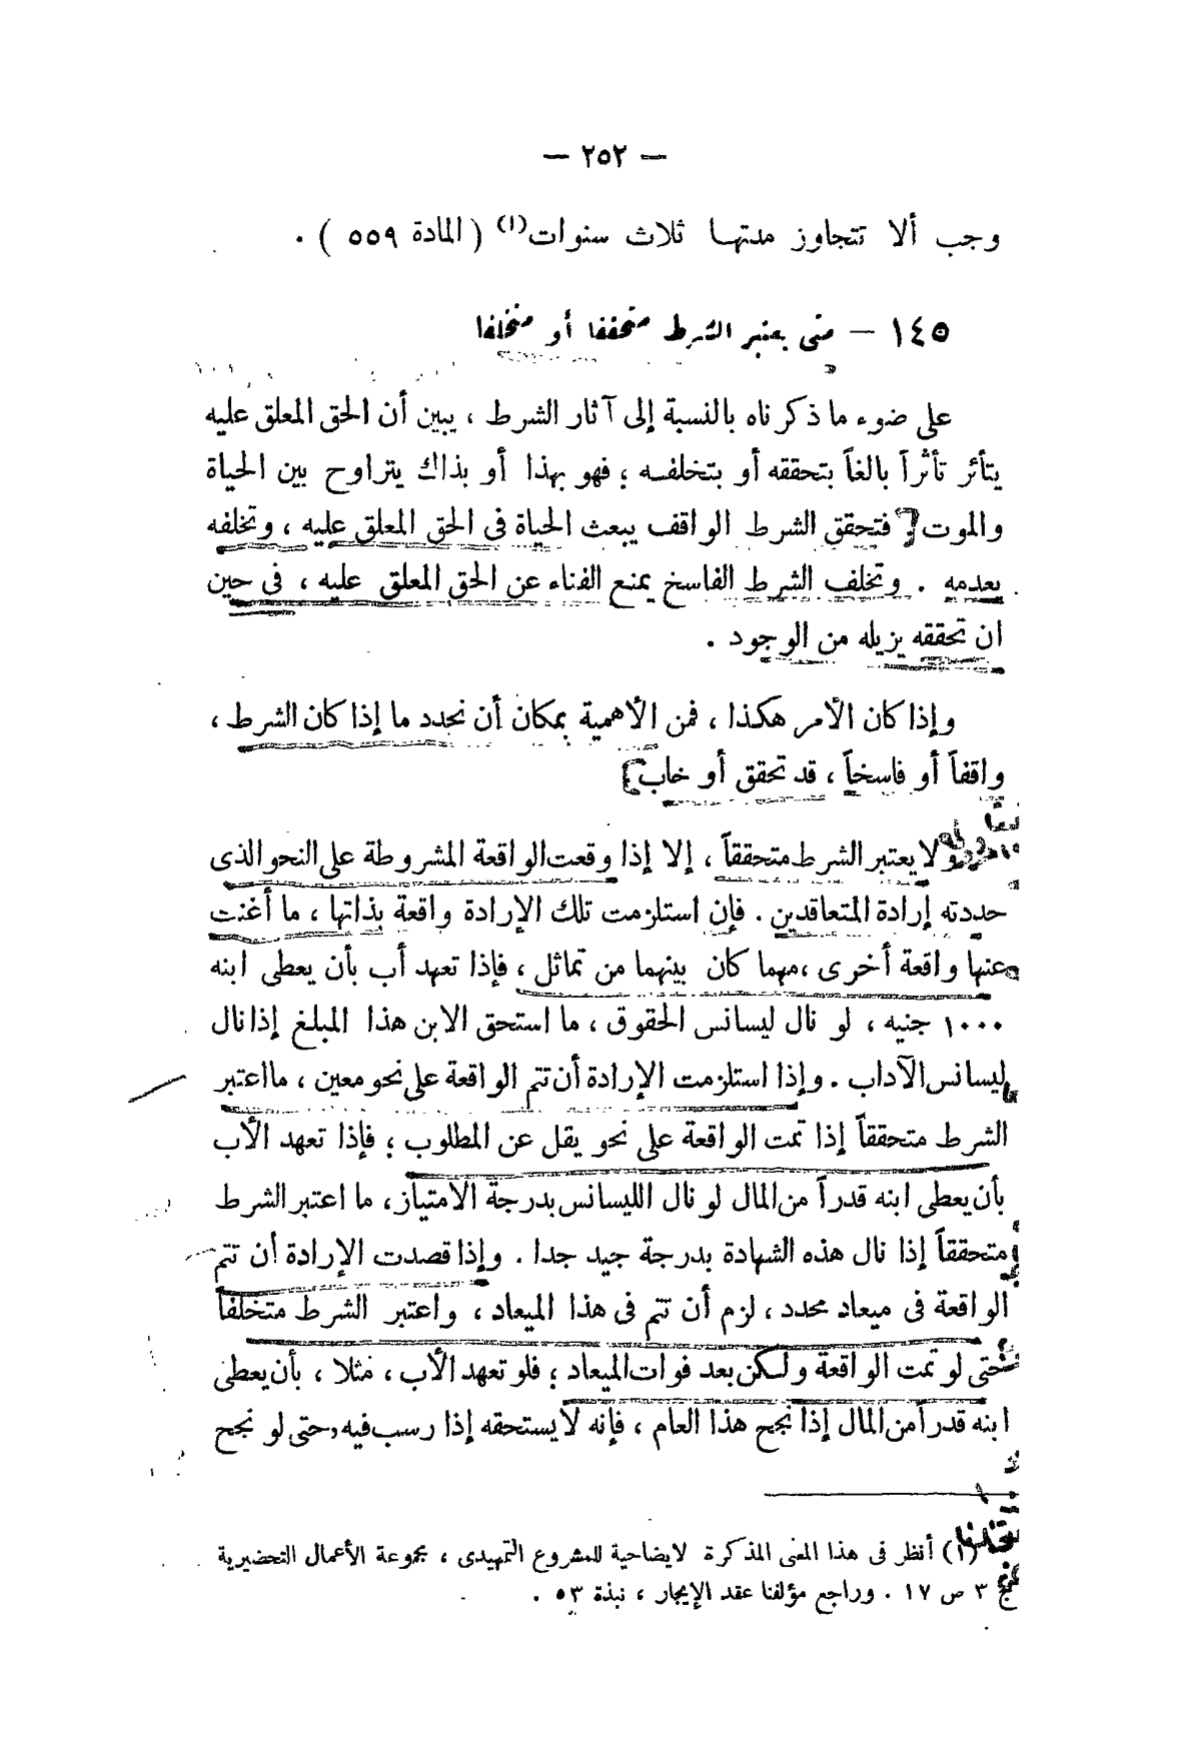 — ٢٥٢ —
وجب ألا تتجاوز مدتها ثلاث سنوات(١) ( المادة ٥٥٩ ) .
١٤٥ — متى يعتبر الشرط متحققا أو متخلفا
على ضوء ما ذكرناه بالنسبة إلى آثار الشرط ، يبين أن الحق المعلق عليه
يتأثر تأثراً بالغاً بتحققه أو بتخلفه ؛ فهو بهذا أو بذاك يتراوح بين الحياة
والموت ؛ فتحقق الشرط الواقف يبعث الحياة فى الحق المعلق عليه ، وتخلفه
يعدمه . وتخلف الشرط الفاسخ يمنع الفناء عن الحق المعلق عليه ، فى حين
ان تحققه يزيله من الوجود .
وإذا كان الأمر هكذا ، فمن الأهمية بمكان أن نحدد ما إذا كان الشرط ،
واقفاً أو فاسخاً ، قد تحقق أو خاب
ولا يعتبر الشرط متحققاً ، إلا إذا وقعت الواقعة المشروطة على النحو الذى
حددته إرادة المتعاقدين . فإن استلزمت تلك الإرادة واقعة بذاتها ، ما أغنت
عنها واقعة أخرى ، مهما كان بينهما من تماثل ، فإذا تعهد أب بأن يعطى ابنه
١٠٠٠ جنيه ، لو نال ليسانس الحقوق ، ما استحق الابن هذا المبلغ إذا نال
ليسانس الآداب . وإذا استلزمت الإرادة أن تتم الواقعة على نحو معين ، ما اعتبر
الشرط متحققاً إذا تمت الواقعة على نحو يقل عن المطلوب ؛ فإذا تعهد الأب
بأن يعطى ابنه قدراً من المال لو نال الليسانس بدرجة الامتياز ، ما اعتبر الشرط
متحققاً إذا نال هذه الشهادة بدرجة جيد جدا . وإذا قصدت الإرادة أن تتم
الواقعة فى ميعاد محدد ، لزم أن تتم فى هذا الميعاد ، واعتبر الشرط متخلفاً
حتى لو تمت الواقعة ولكن بعد فوات الميعاد ؛ فلو تعهد الأب ، مثلا ، بأن يعطى
ابنه قدراً من المال إذا نجح هذا العام ، فإنه لا يستحقه إذا رسب فيه ، حتى لو نجح
(١) أنظر فى هذا المعنى المذكرة لايضاحية للمشروع التمهيدى ، مجموعة الأعمال التحضيرية
ج ٣ ص ١٧ . وراجع مؤلفنا عقد الإيجار ، نبذة ٥٣ .